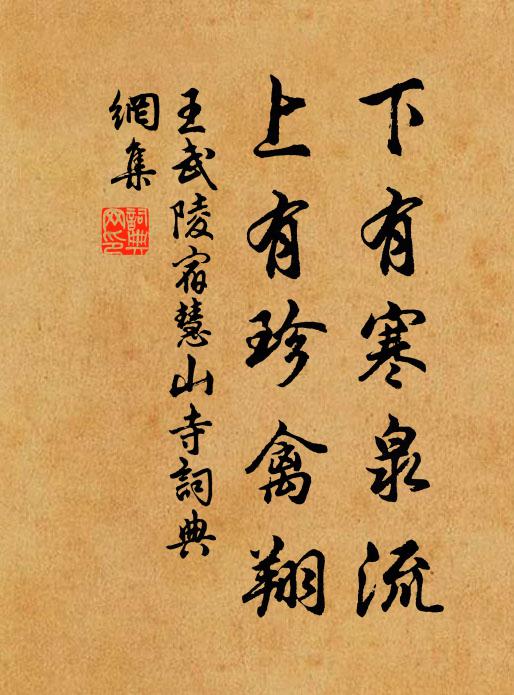 下有寒泉流
上有珍禽翔
王武陵宿慧山寺詞典
網集
詞典
網印